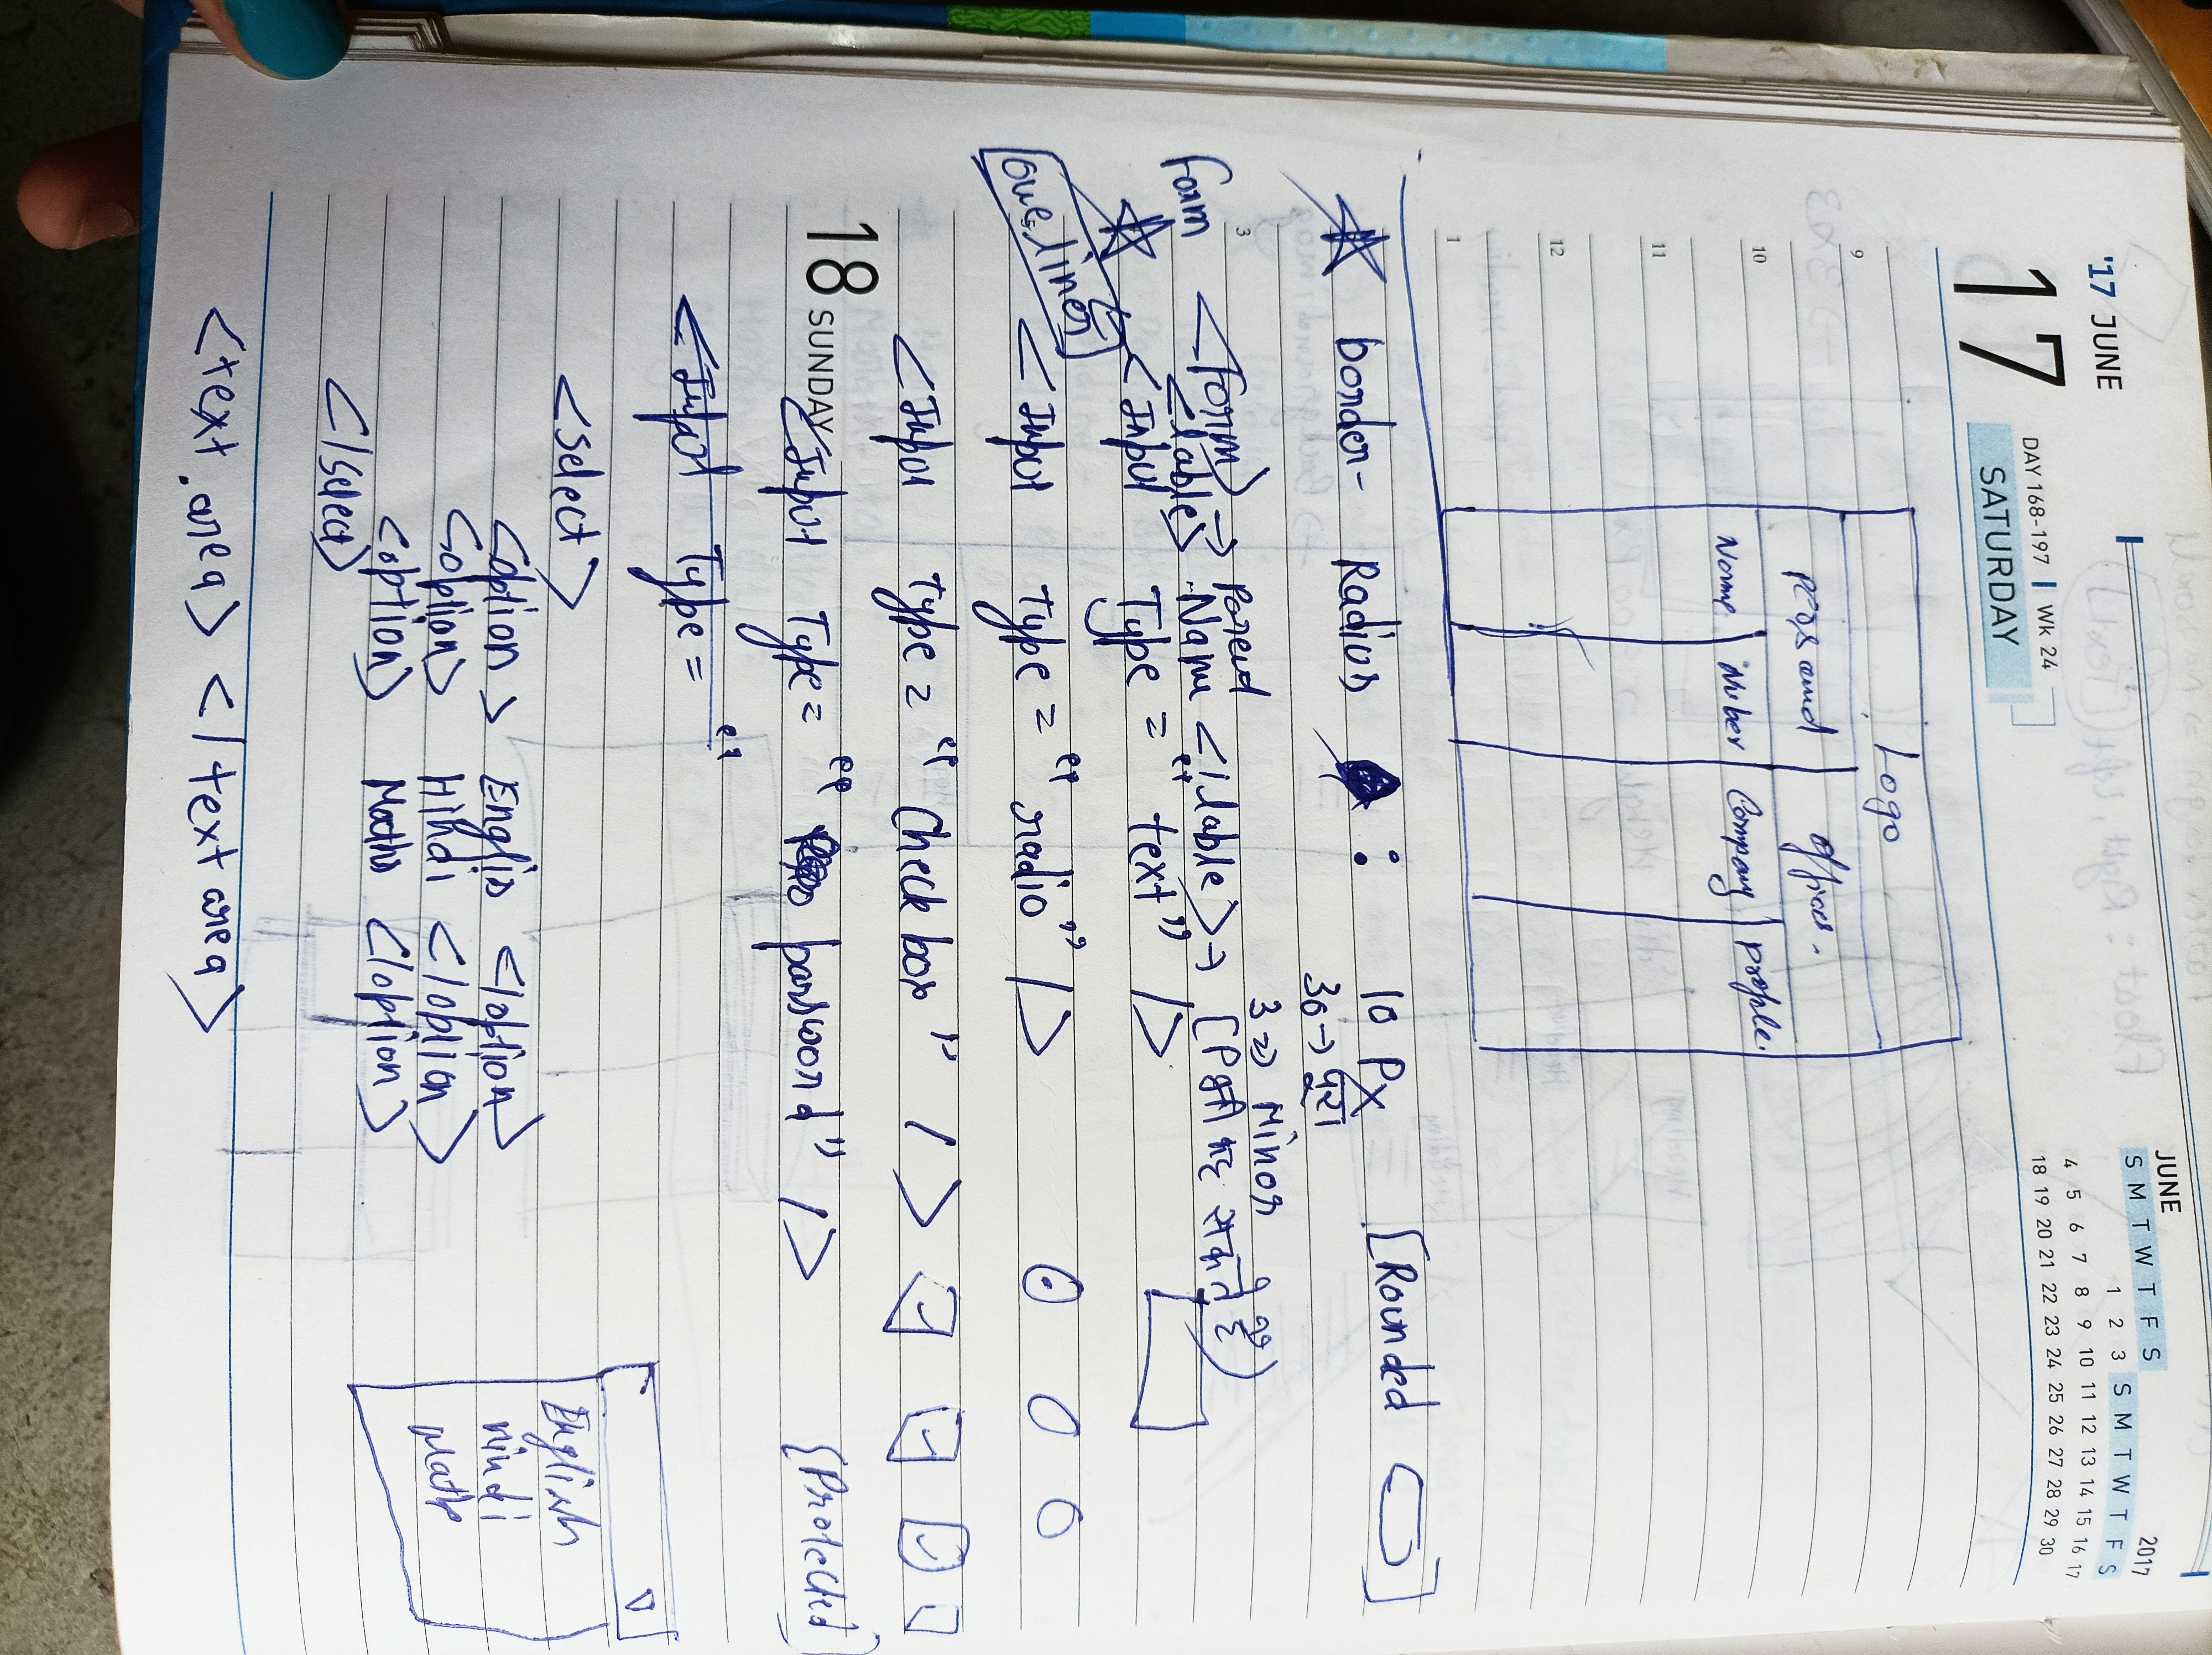 '17 JUNE
17
DAY 168-197 | Wk 24
SATURDAY
JUNE
2017
S M T W T F S
S M T W T F S
1 2 3
4 5 6 7 8 9 10 11 12 13 14 15 16 17
18 19 20 21 22 23 24 25 26 27 28 29 30
Logo
offices.
Name Nuber Company
9
10
11
12
1
border- Radius : 10 Px [Rounded ]
30 → पूरा
3 => Minor
3
Form <Form> →
<lable> Name </lable> → [P भी कह सकते है)
<Input Type = "text" />
one liner
5
<Input Type = "radio" />
<Input Type = "Check box" />
18 SUNDAY
<Input Type = "password" /> {Protected}
<Input Type = "
<select>
<option> Englis </option>
<option> Hindi </option>
<option> Maths </option>
</select>
English
hindi
math
<text.area> </text area>